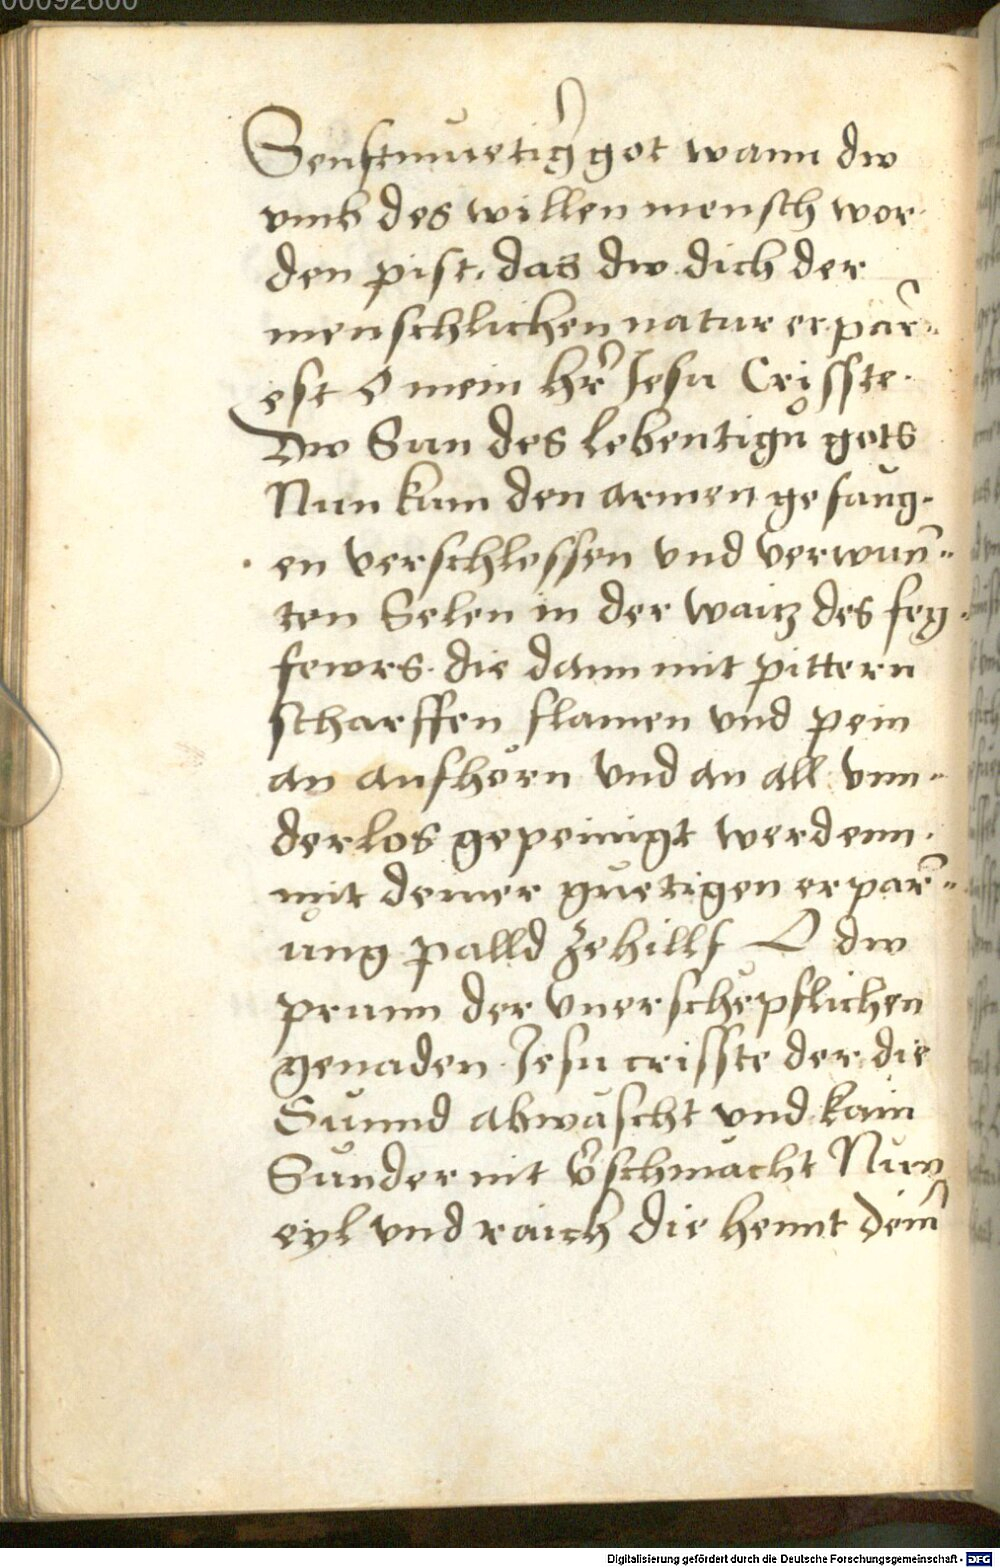 00092600
Senftmuetig̃ got wann dw
vmb des willen mensch wor
den pist. das dw dich der
menschlichen natur erpar̃-
est O mein hr̃ Jesu Crisste.
Dw Sun des lebentign̊ gots
Nun kum den armen gefang-
en verschlossen vnd verwun̄-
ten Selen in der waitz des feg
fewrs. die dann mit pittern
scharffen flamen vnd pein
an aufhörn vnd an all vnn-
derlos gepeinigt werdenn.
mit deiner guetigen erpar̃-
ůng palld zehillf O dw
prunn der vnerschepflichen
genaden Jesu crisste der die
Sünnd abwäscht vnd kain
Sůnder nit v̄schmächt Nun
eyl vnd raich die hennt dein̄
Digitalisierung gefördert durch die Deutsche Forschungsgemeinschaft - DFG